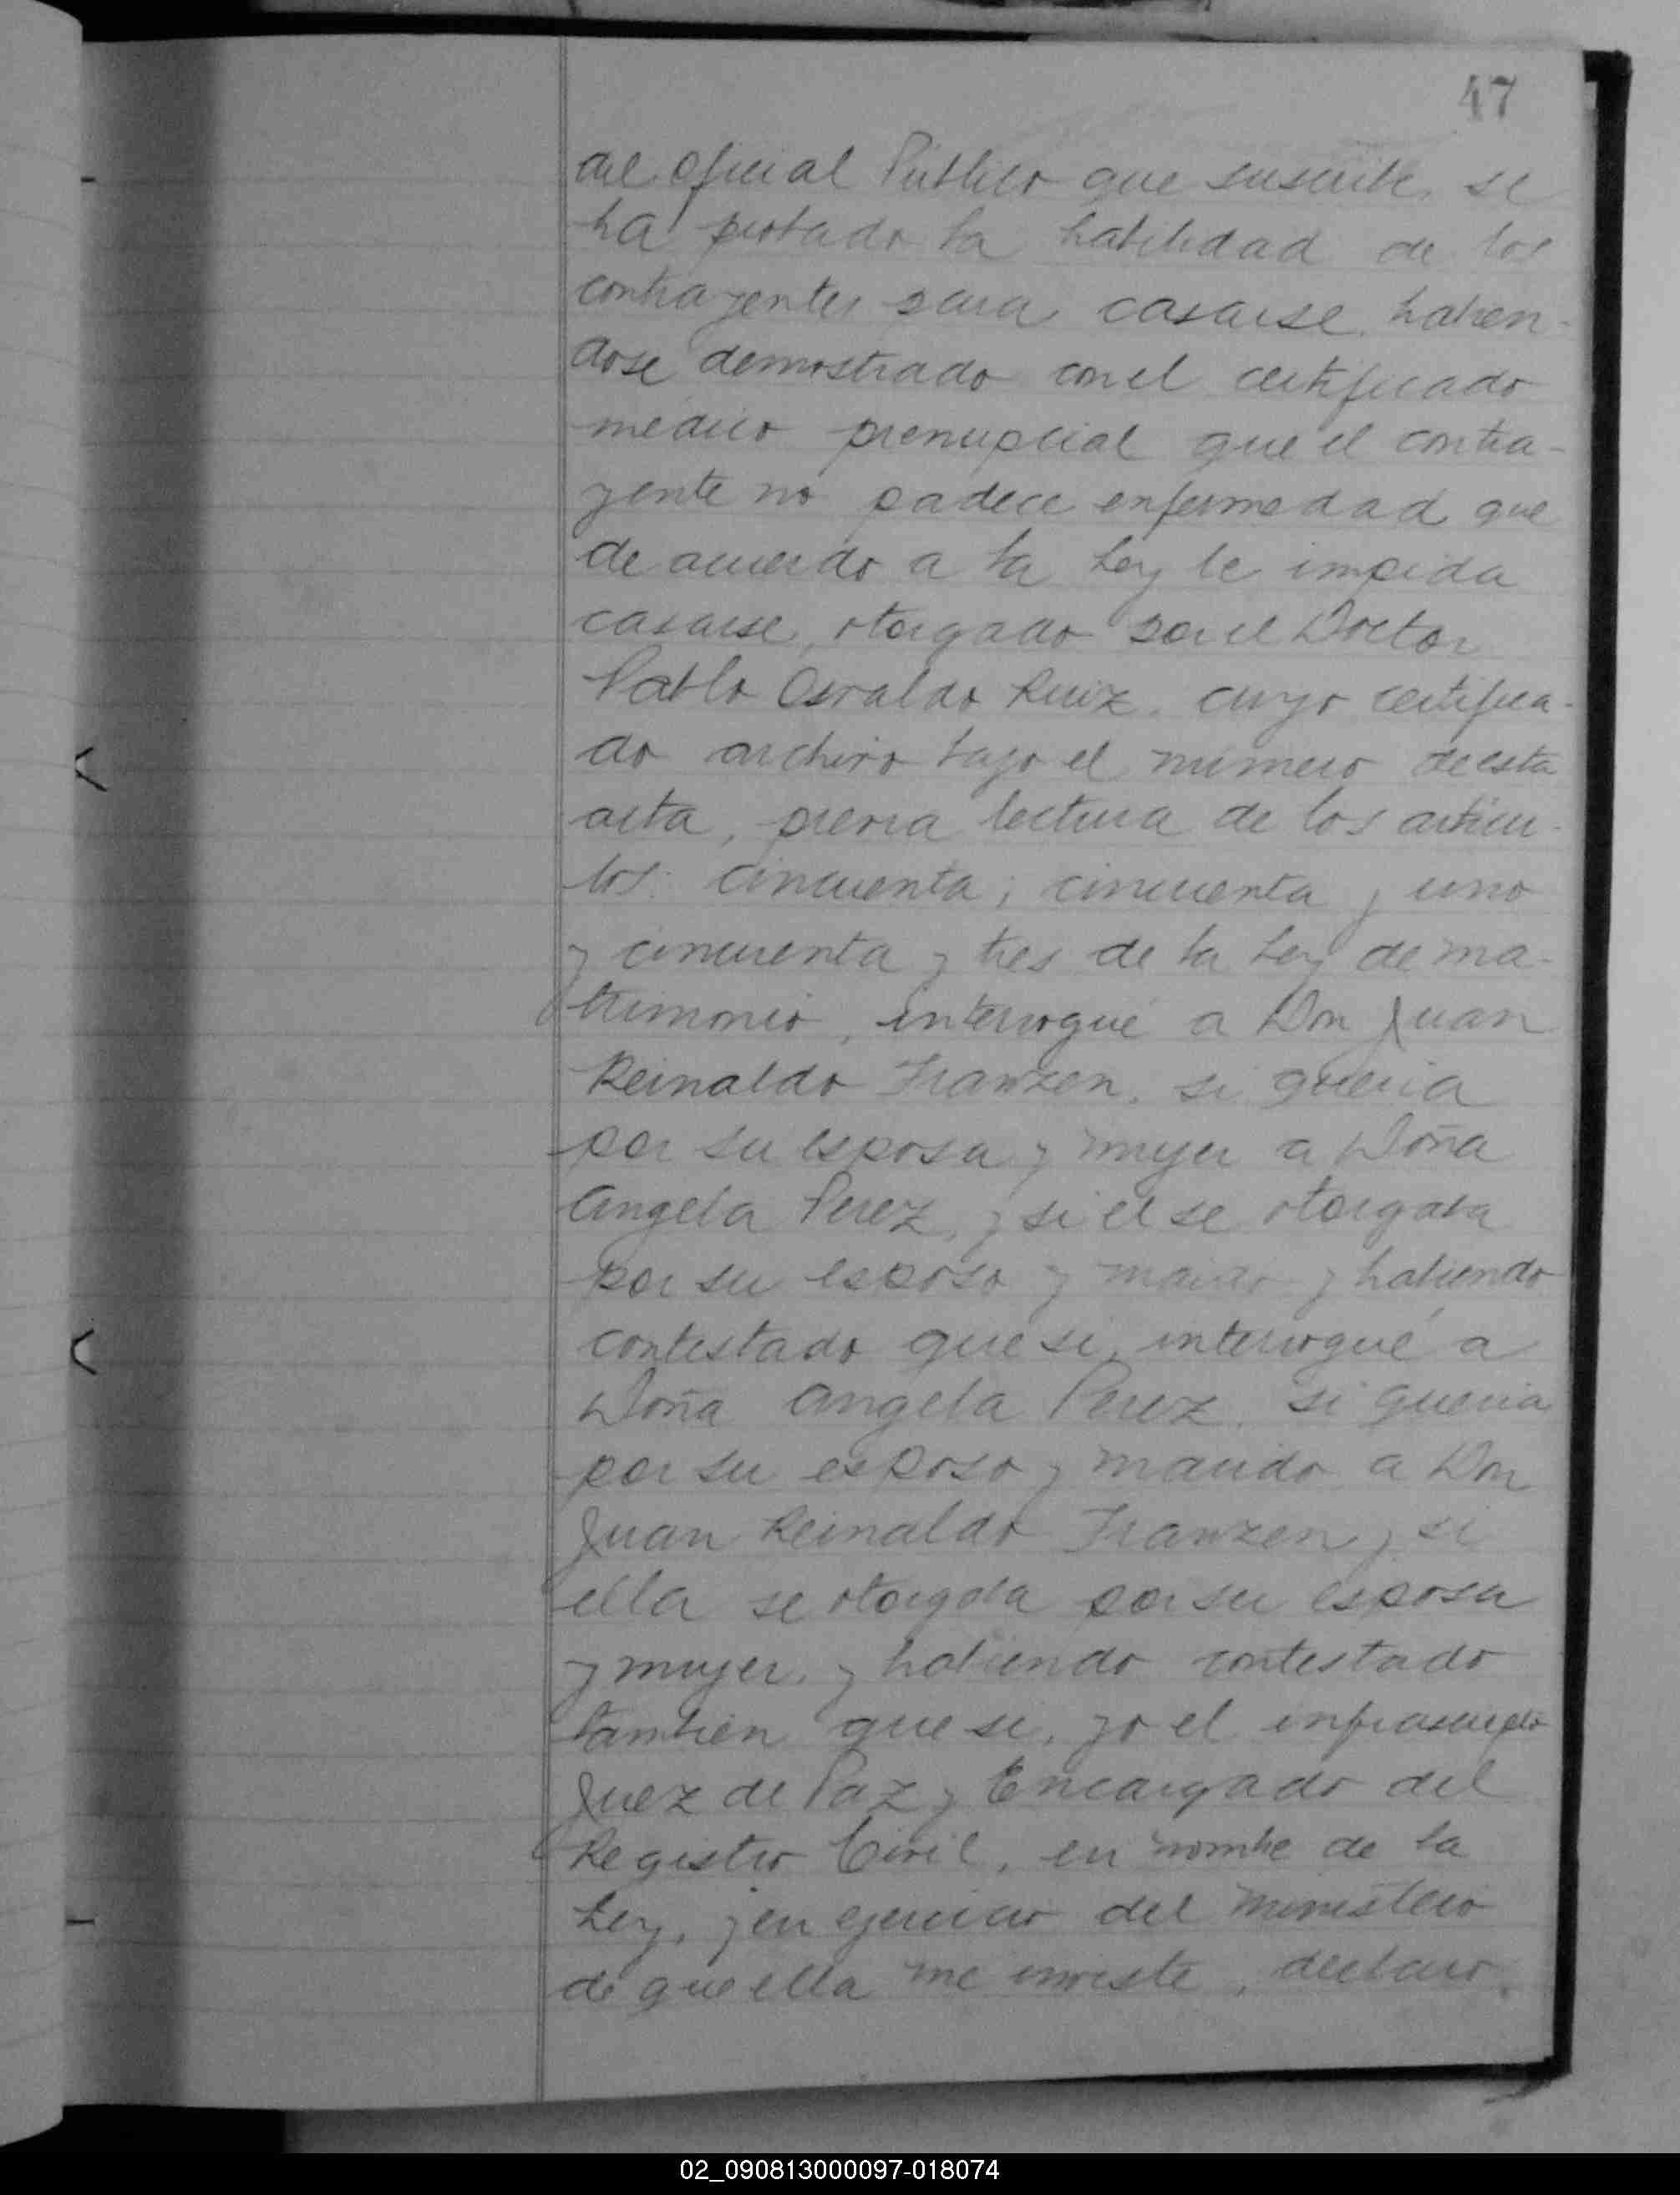 47
del Oficial Público que suscribe, se
ha probado la habilidad de los
contrayentes para casarse, habien-
dose demostrado con el certificado
medico prenupcial que el contra-
yente no padece enfermedad que
de acuerdo a la Ley le impida
casarse, otorgado por el Doctor
Pablo Osvaldo Ruiz, cuyo certifica-
do archivo bajo el número de esta
acta, previa lectura de los articu-
los: cincuenta; cincuenta y uno
y cincuenta y tres de la Ley de ma-
trimonio, interrogué a Don Juan
Reinaldo Franzen, si queria
por su esposa y mujer a Doña
Angela Perez, y si el se otorgaba
por su esposo y marido y habiendo
contestado que si, interrogué a
Doña Angela Perez, si queria
por su esposo y marido a Don
Juan Reinaldo Franzen y si
ella se otorgaba por su esposa
y mujer, y habiendo contestado
tambien que si, yo el infrascripto
Juez de Paz y Encargado del
Registro Civil, en nombre de la
Ley, y en ejercicio del ministerio
de que ella me inviste, declaro,
02_090813000097-018074